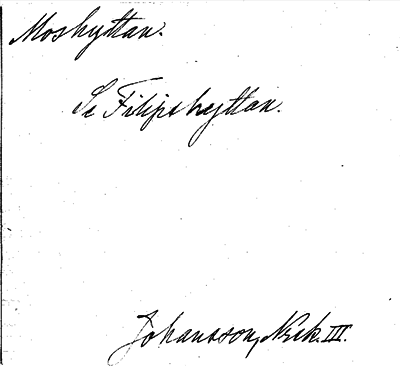 Moshyttan.
Se Filipshyttan.
Johansson, Norb. III.